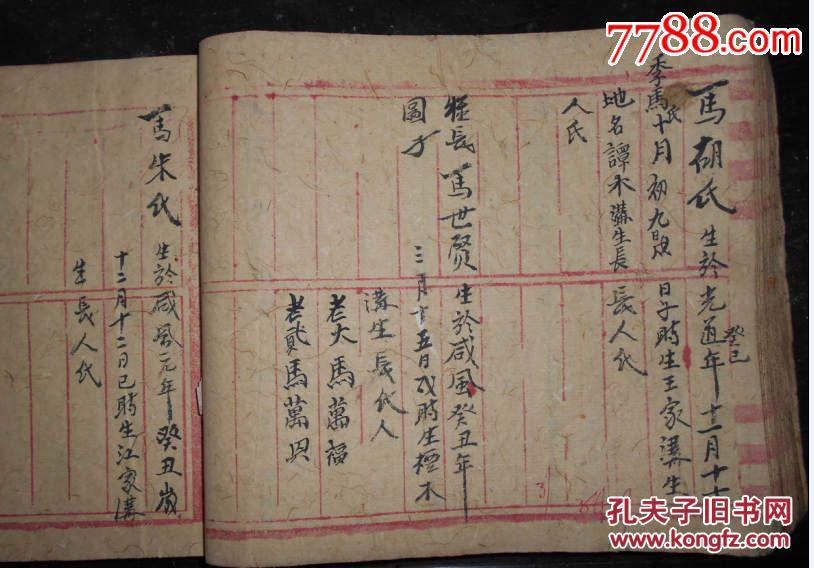 7788.com
馬胡氏 生於光道癸巳年十二月十
季馬氏十月初九日 日子時生王家溝生
地名譚木溝生長 長人氏
人氏
姪長 馬世賢 生於咸風癸丑年
圖才 三月十五日戌時生檀木
溝生長代人
老大馬萬福
老貳馬萬貝
馬朱氏 生於咸風元年癸丑歲
十二月十二日巳時生江家溝
生長人氏
孔夫子旧书网
kongfz.com